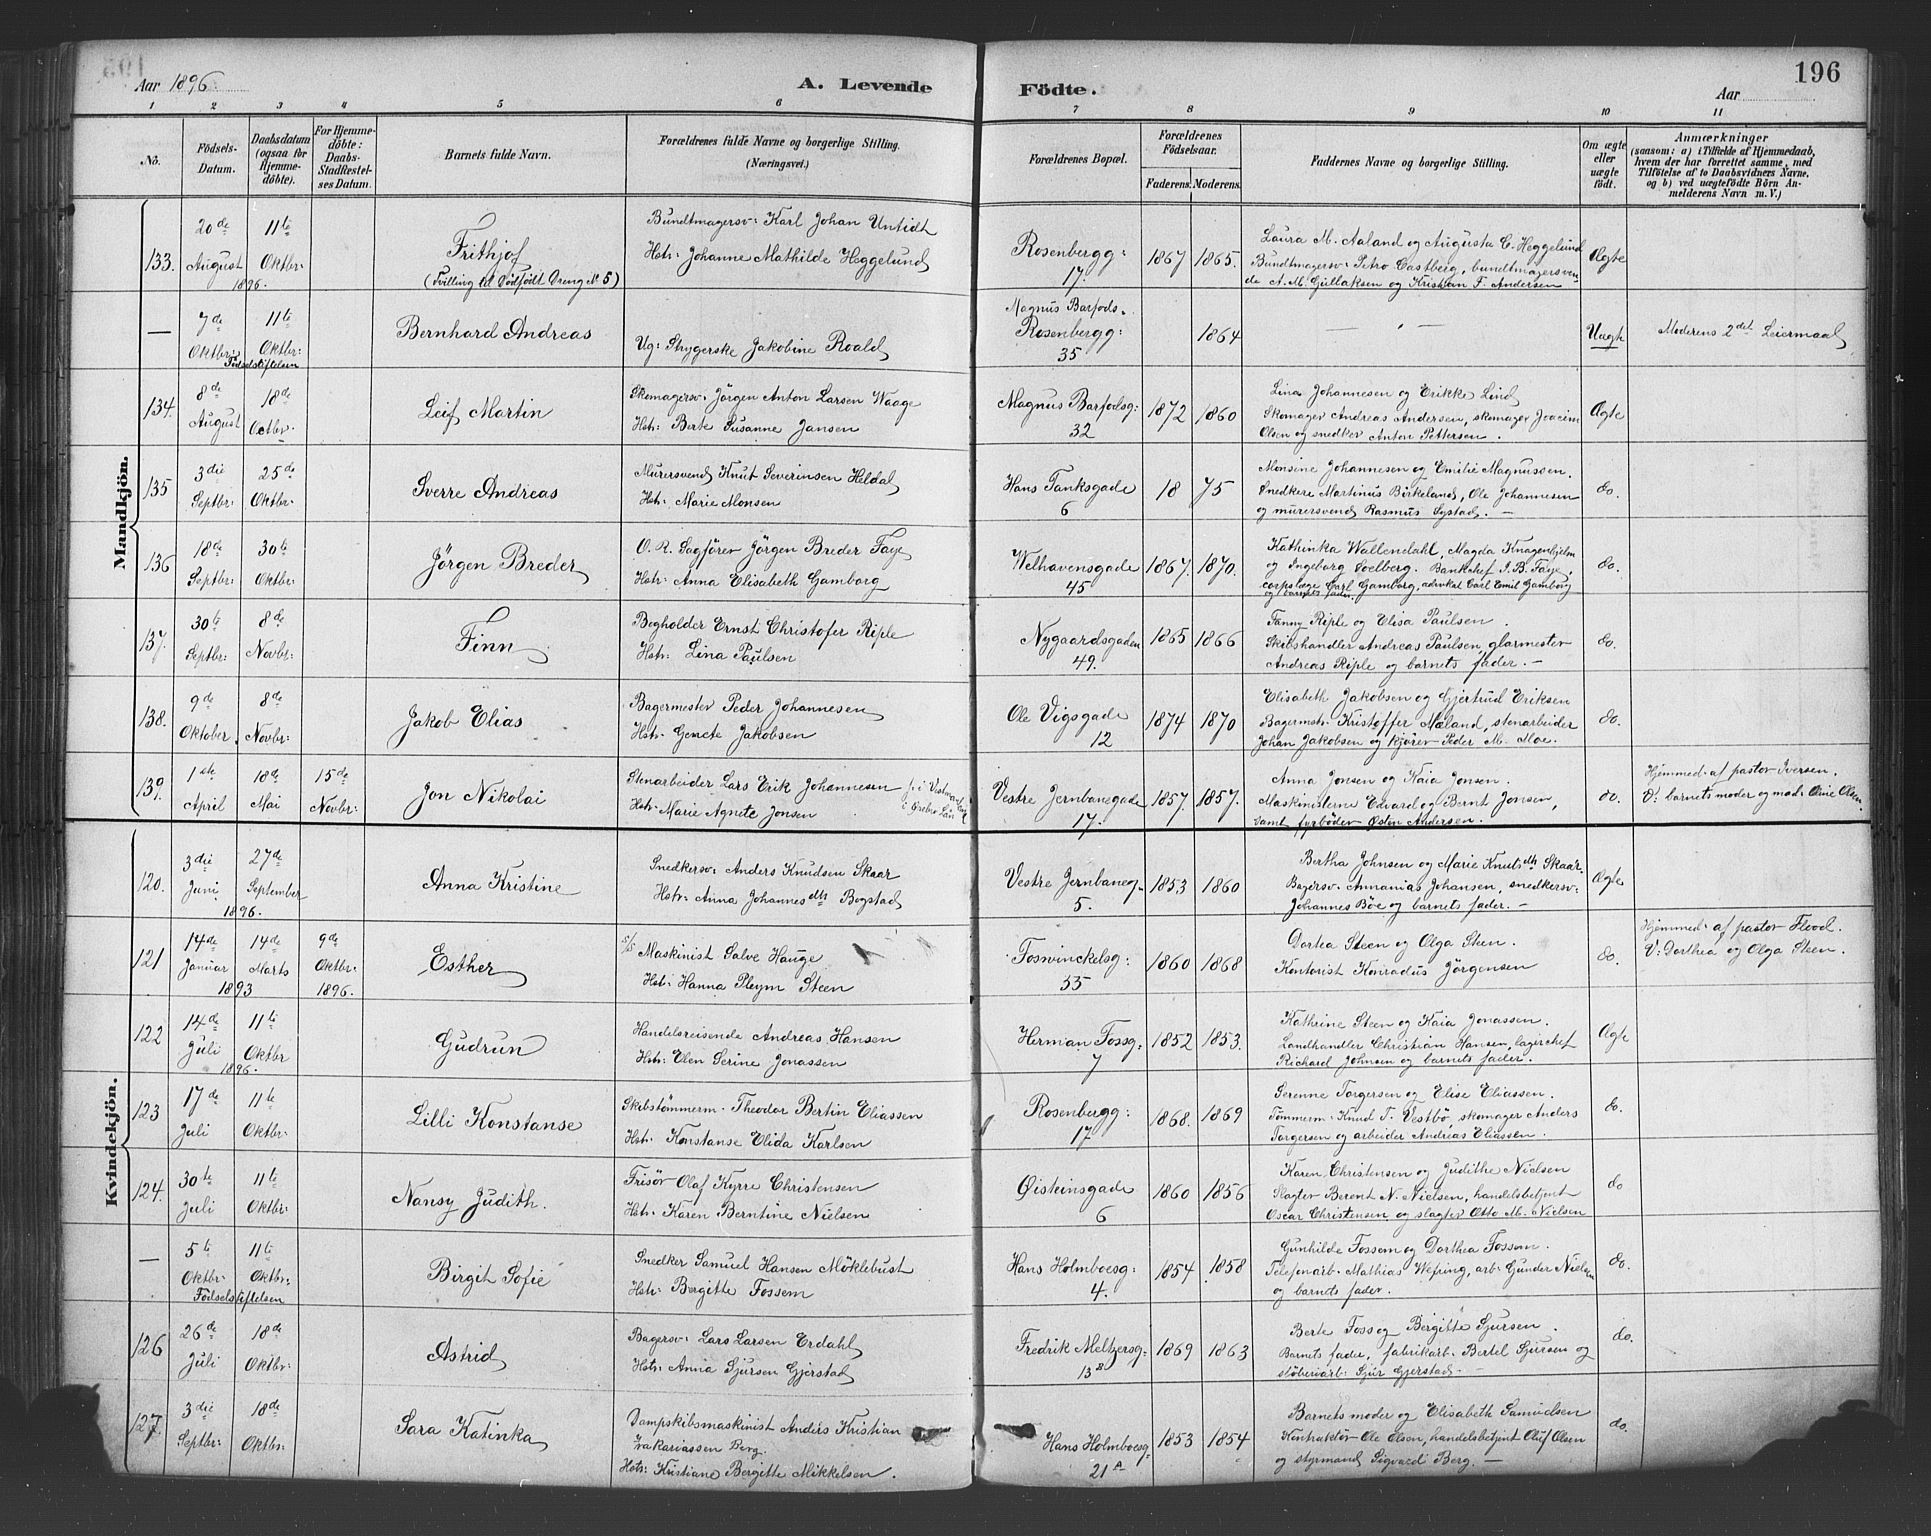 Aar 1896
A. Levende Födte.
196
Aar
1 2 3 4 5 6 7 8 9 10 11
No.
Födsels-Datum.
Daabsdatum (ogsaa for Hjemmedöbte).
For Hjemmedöbte: Daabs-Stadfæstelses Datum.
Barnets fulde Navn.
Forældrenes fulde Navne og borgerlige Stilling. (Næringsvei.)
Forældrenes Bopæl.
Forældrenes Födselsaar.
Faderens. Moderens.
Faddernes Navne og borgerlige Stilling.
Om ægte eller uægte födt.
Anmærkninger
(saasom: a) i Tilfælde af Hjemmedaab, hvem der har forrettet samme, med Tilföielse af to Daabsvidners Navne, og b) ved uægtefödte Börn Anmelderens Navn m. V.)
Mandkjön.
133. 20de August 1896. 11te Oktbr:
Frithjof
(Tvilling til Dödfödt Dreng No 5)
Bundtmagersv: Karl Johan Untidt
Hstr: Johanne Mathilde Heggelund
Rosenbergg: 17.
1867 1865.
Laura M. Aaland og Augusta C. Heggelund
Bundtmagersv: Petro Castberg, bundtmagersven-
de A. M. Gullaksen og Kristian F. Andersen
Ægte
— 7de Oktbr: Födselsstiftelsen 11te Oktbr:
Bernhard Andreas
Ug: Strygerske Jakobine Roald
Magnus Barfods.
Rosenbergg: 35
1864
Uægte
Moderens 2det Leiermaal
134. 8de August 18de Octbr.
Leif Martin
Skomagersv. Jörgen Anton Larsen Waage
Hstr: Berte Susanne Jansen
Magnus Barfodsg: 32
1872 1860
Lina Johannesen og Erikke Lind
Skomager Andreas Andersen, skomager Joacim
Olsen og snedker Anton Pettersen.
Ægte
135 3die Septbr: 25de Oktbr:
Sverre Andreas
Murersvend Knut Severinsen Heldal
Hst: Marie Monsen
Hans Tanksgade 6
18 75
Monsine Johannesen og Emilie Magnussen.
Snedkere Martinus Birkeland, Ole Johannesen
og murersvend Rasmus Systad. —
do.
136 18de Septbr: 30te Oktbr:
Jörgen Breder
O. R. Sagförer Jörgen Breder Faye
Hstr: Anna Elisabeth Gamborg
Welhavensgade 45
1867. 1870.
Kathinka Wallendahl, Magda Knagenhjelm
og Ingeborg Soelberg. Bankchef J. B. Faye,
corpslæge Carl Gamborg, advokat Carl Emil Gamborg
og barnets fader.
do.
137. 30te Septbr: 8de Novbr:
Finn
Bogholder Ernst Christofer Riple
Hstr: Lina Paulsen
Nygaardsgaden 49.
1865 1866
Fanny Riple og Elisa Paulsen.
Skibshandler Andreas Paulsen, glarmester
Andreas Riple og barnets fader. —
do.
138. 9de Oktober 8de Novbr:
Jakob Elias
Bagermester Peder Johannesen
Hstr: Gurete Jakobsen
Ole Vigsgade 12
1874 1870
Elisabeth Jakobsen og Gjertrud Eriksen
Bagermstr. Kristoffer Mæland, stenarbeider
Johan Jakobsen og kjörer Peder M. Moe.
do.
139. 1ste April 18de Mai 15de Novbr:
Jon Nikolai
Stenarbeider Lars Erik Johannesen
Hstr: Marie Agnete Jonsen
Vestre Jernbanegade 17.
1857. 1857.
Anna Jonsen og Kaia Jonsen.
Maskinisterne Edvard og Bernt Jonsen,
samt fyrböder Östen Andersen.
do.
Hjemmed. af pastor Iversen.
V: barnets moder og mad. Oline Olsen
Kvindekjön.
120. 3die Juni 1896. 27de September
Anna Kristine
Snedkersv. Anders Knudsen Skaar
Hstr: Anna Johannesdtr Bogstad
Vestre Jernbaneg. 5.
1853 1860
Bertha Johnsen og Marie Knutsdtr Skaar
Bagersv. Annanias Johansen, snedkersv:
Johannes Böe og barnets fader. —
Ægte
121 14de Januar 1893 14de Marts 9de Oktbr: 1896.
Esther
5/5 Maskinist Salve Hauge
Hstr: Hanna Pleym Steen
Fosvinckelsg: 35
1860 1868
Dortea Steen og Olga Steen.
Kontorist Konradus Jörgensen
do.
Hjemmed. af pastor Flood.
V: Dorthea og Olga Steen.
122 14de Juli 1896. 11te Oktbr
Gudrun
Handelsreisende Andreas Hansen
Hstr: Elen Serine Jonassen
Herman Fossg: 7
1852 1853.
Kathrine Steen og Kaia Jonassen.
Landhandler Christian Hansen, lagerchef
Richard Johnsen og barnets fader.
Ægte
123 17de Juli 11te Oktbr:
Lilli Konstanse
Skibstömmerm. Theodor Bertin Eliassen
Hstr: Konstanse Elida Karlsen
Rosenbergg: 17
1868. 1869
Serenne Torgersen og Elise Eliassen.
Tömmerm. Knud T. Vestbö, skomager Anders
Torgersen og arbeider Andreas Eliassen.
do.
124. 30te Juli 11te Oktbr:
Nansy Judith.
Frisör Olaf Kyrre Christensen
Hstr: Karen Berntine Nielsen
Øisteinsgade 6
1860 1856
Karen Christensen og Judithe Nielsen
Slagter Berent N. Nielsen, handelsbetjent
Oscar Christensen og slagter Otto M. Nielsen
do
— 5te Oktbr. Födselsstiftelsen 11te Oktbr:
Birgit Sofie
Snedker Samuel Hansen Möklebust
Hstr: Bergitte Fossem
Hans Holmboesg: 4.
1854 1858
Gunhilde Fossem og Dorthea Fossem.
Telefonarb. Mathias Wefring, arb: Gunder Nielsen
og barnets fader.
do.
126 26de Juli 18de Oktbr:
Astrid
Bagersv: Lars Larsen Erdahl
Hstr: Anna Sjursen Gjerstad
Fredrik Meltzersg: 13B
1869 1863
Berte Foss og Bergitte Sjursen.
Barnets fader, fabrikarb. Bertel Sjursen og
stöberiarb: Sjur Gjerstad.
do.
127. 3die Septbr: 18de Oktbr:
Sara Katinka
Dampskibsmaskinist Anders Kristian
Zakariassen Berg.
Hstr: Kristiane Bergitte Mikkelsen.
Hans Holmboesg. 21A
1853 1854
Barnets moder og Elisabeth Samuelsen
Kontraktör Ole Olsen, handelsbetjent Oluf Olsen
og styrmand Sigvald Berg. —
do.